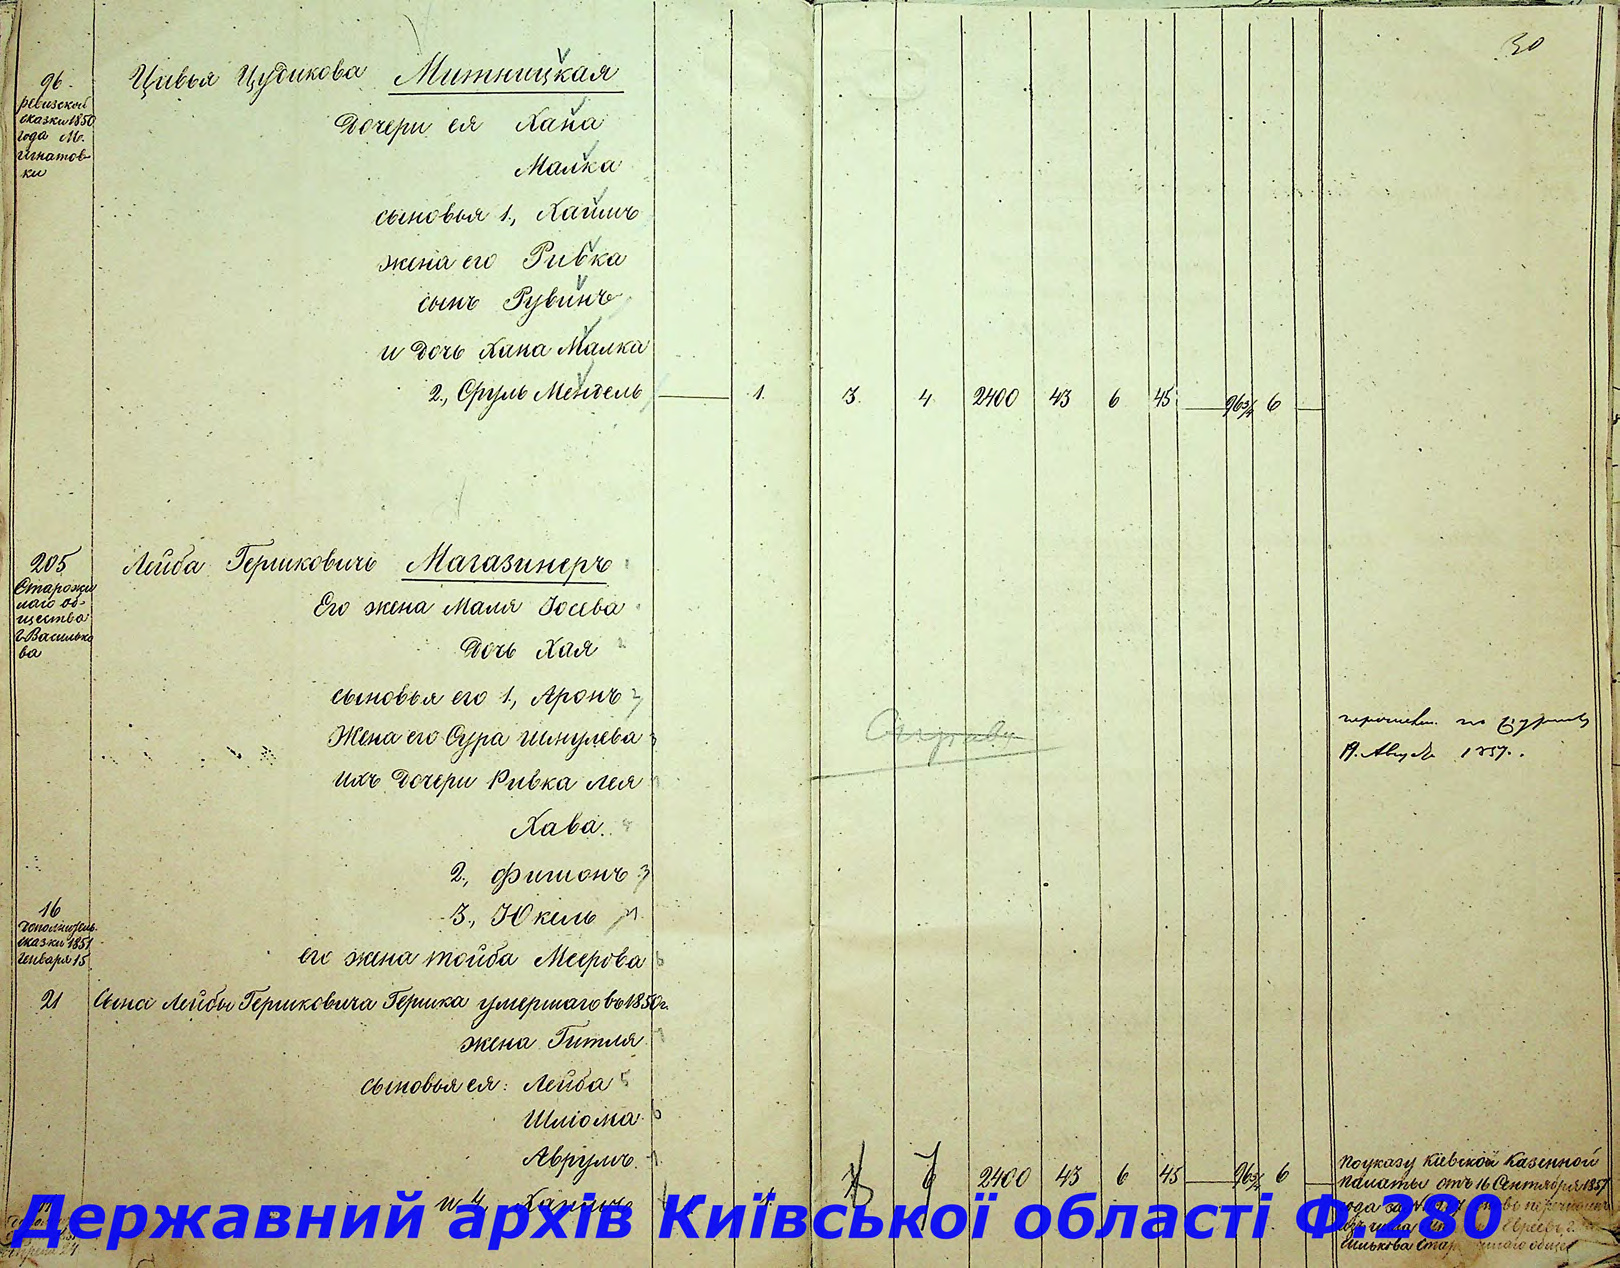 30
96
ревизской
сказки 1850
года М.
Игнатов-
ки
Цивья Цудикова Митницкая
Дочери ея Хана
Малка
сыновья 1., Хаимъ
жена его Ривка
сынъ Рувинъ
и дочь Хана Малка
2., Сруль Мендель — 1. 3. 4 2400 43 6 45 — 96¾ 6 —
205
Старожи
лаго об-
щества
г. Василько
ва
Лейба Гершковичь Магазинеръ
Его жена Маля Іосева
Дочь Хая
сыновья его 1., Аронъ
Жена его Сура Шмулева
ихъ Дочери Ривка Лея
Хава.
2., Фишонъ
3., Юкель
16
дополнитель.
сказки 1851
Генваря 15
его жена Тойба Меерова
21 Сына Лейбы Гершковича Гершка умершаго въ 1850 г.
жена Гитля
сыновья ея: Лейба
Шліома
Аврумъ
и 4, 1. 6 2400 43 6 45 — 96¾ 6 —
19. 1857.
По указу Кіевской Казенной
палаты отъ 16 Сентября 1857
года за №
Евреевъ г.
силькова
Державний архів Київської області Ф.280